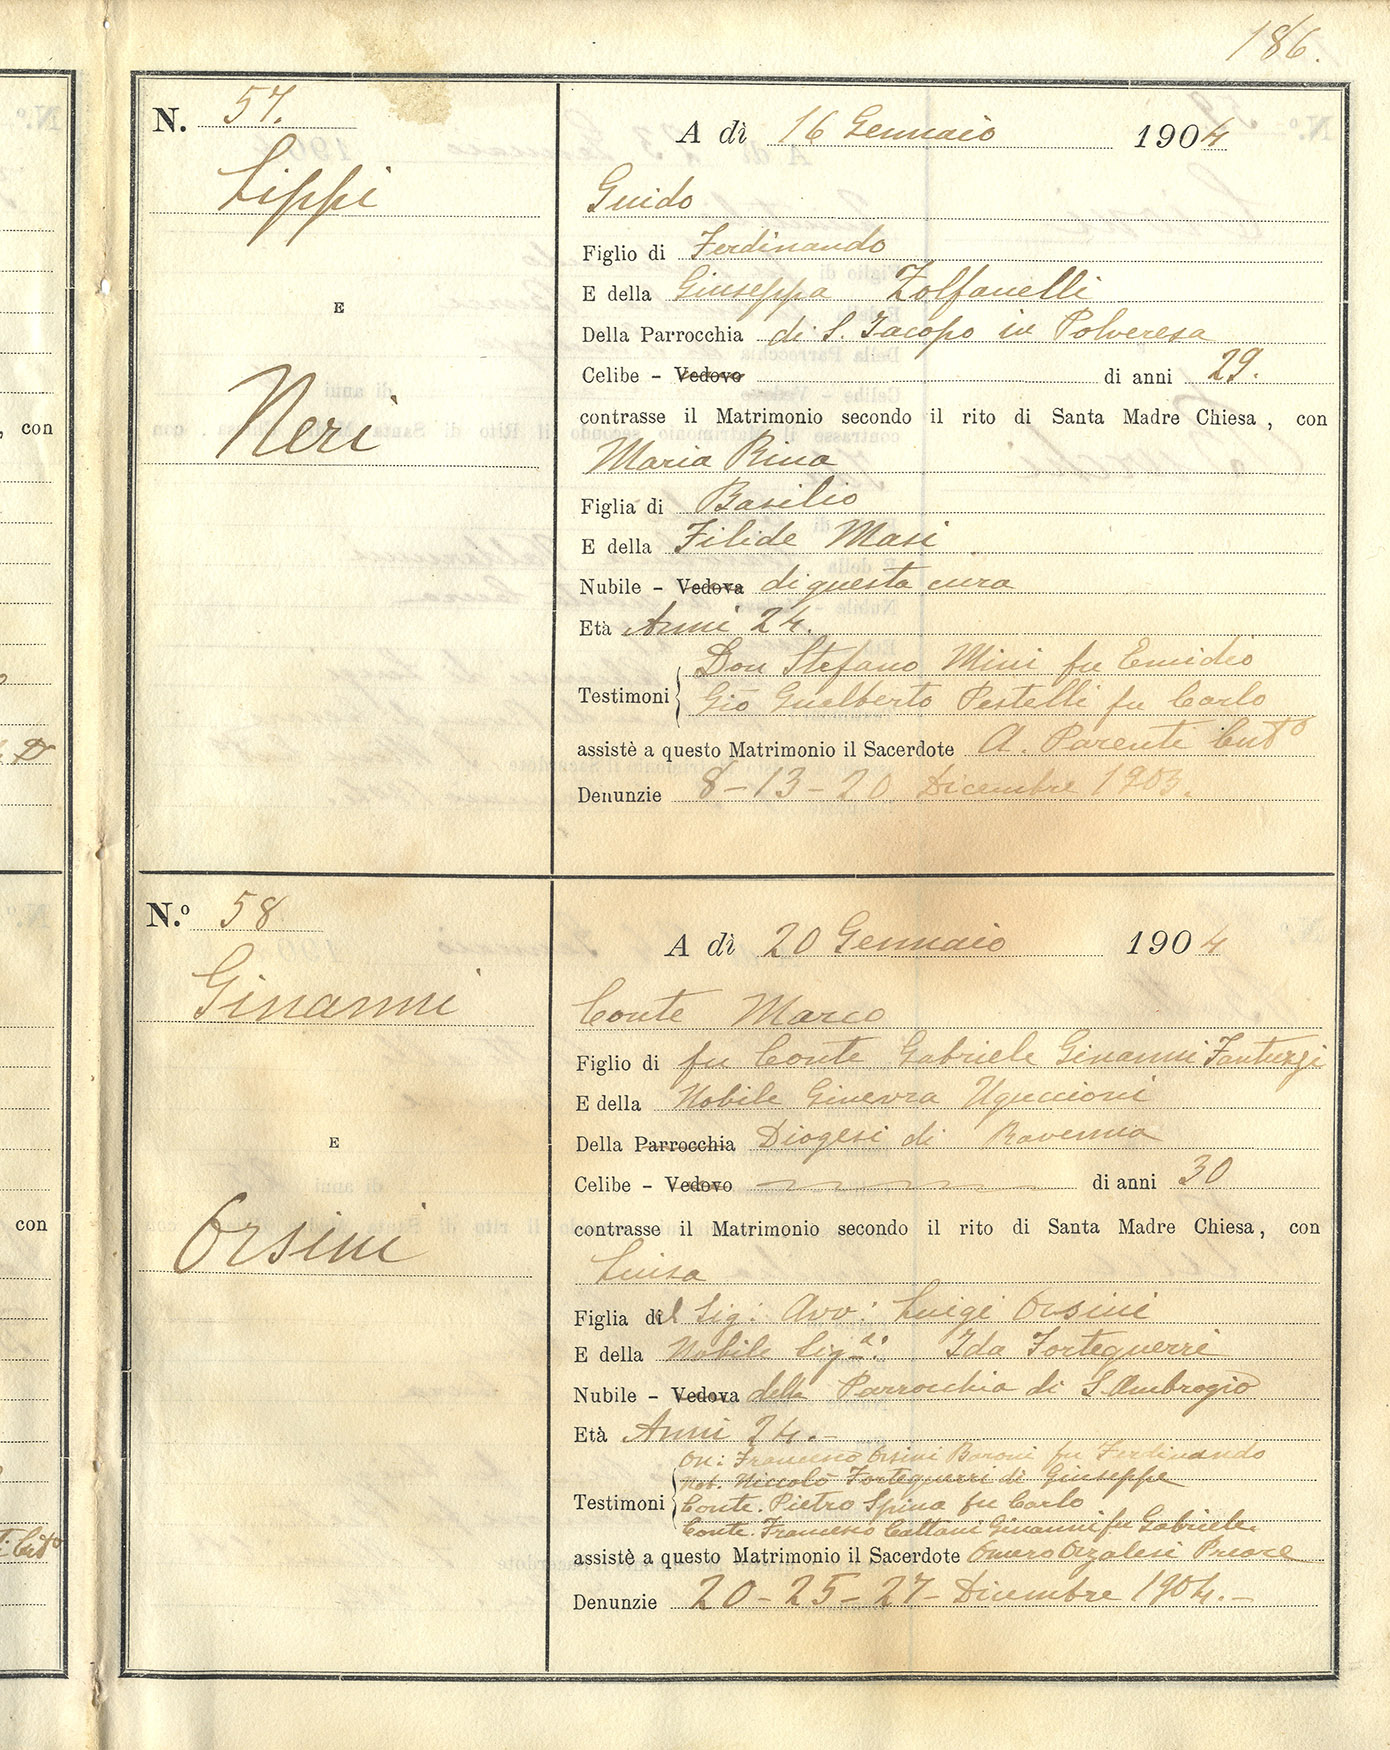 186.
, con
con
N. 57.
Lippi
E
Neri
A dì 16 Gennaio 1904
Guido
Figlio di Ferdinando
E della Giuseppa Zolfanelli
Della Parrocchia di S. Jacopo in Polveresa
Celibe - Vedovo di anni 29.
contrasse il Matrimonio secondo il rito di Santa Madre Chiesa, con
Maria Rina
Figlia di Basilio
E della Filide Masi
Nubile - Vedova di questa cura
Età Anni 24.
Don Stefano Mini fu Emidio
Testimoni
Gio Gualberto Pestelli fu Carlo
assistè a questo Matrimonio il Sacerdote A. Parenti
Denunzie 8-13-20 Dicembre 1903.
N.º 58
Ginanni
E
Orsini
A dì 20 Gennaio 1904
Conte Marco
Figlio di fu Conte Gabriele Ginanni Fantuzzi
E della Nobile Ginevra Uguccioni
Della Parrocchia Diogesi di Ravenna
Celibe - Vedovo di anni 30
contrasse il Matrimonio secondo il rito di Santa Madre Chiesa, con
Luisa
Figlia del Sig: Avv: Luigi Orsini
E della Nobile Sig.ª: Ida Forteguerri
Nubile - Vedova della Parrocchia di S. Ambrogio
Età Anni 24.-
On: Francesco Orsini Baroni fu Ferdinando
Nob. Niccolò Forteguerri di Giuseppe
Testimoni Conte. Pietro Spina fu Carlo
Conte. Francesco Cattani Ginanni fu Gabriele.
assistè a questo Matrimonio il Sacerdote Omero Orzalesi Priore
Denunzie 20-25-27- Dicembre 1904.-